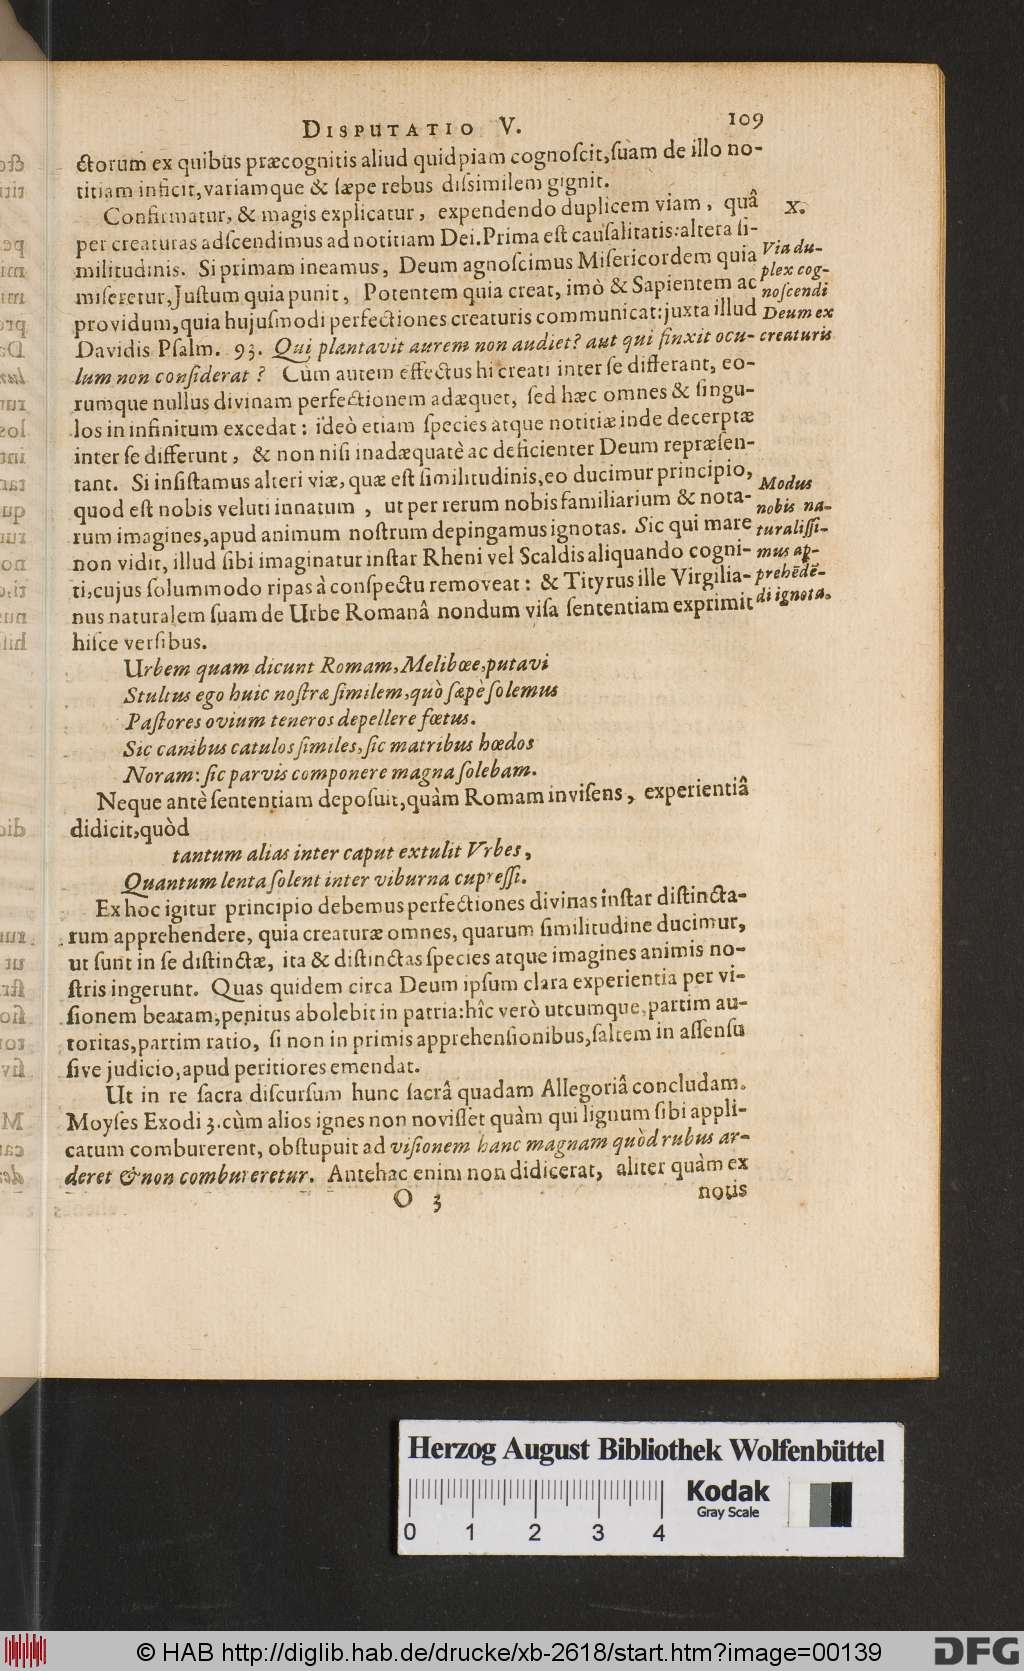 DISPUTATIO V. 109
ctorum ex quibus præcognitis aliud quidpiam cognoſcit, ſuam de illo no-
titiam inficit, variamque & ſæpe rebus diſsimilem gignit.
Confirmatur, & magis explicatur, expendendo duplicem viam, quâ
X.
per creaturas adſcendimus ad notitiam Dei. Prima eſt cauſalitatis: altera ſi-
militudinis. Si primam ineamus, Deum agnoſcimus Miſericordem quia
miſeretur, Juſtum quia punit, Potentem quia creat, imò & Sapientem ac
providum, quia hujuſmodi perfectiones creaturis communicat: juxta illud
Davidis Pſalm. 93. Qui plantavit aurem non audiet? aut qui finxit ocu-
lum non conſiderat? Cùm autem effectus hi creati inter ſe differant, eo-
rumque nullus divinam perfectionem adæquet, ſed hæc omnes & ſingu-
los in infinitum excedat: ideò etiam ſpecies atque notitiæ inde decerptæ
inter ſe differunt, & non niſi inadæquatè ac deficienter Deum repræſen-
tant. Si inſiſtamus alteri viæ, quæ eſt ſimilitudinis, eo ducimur principio,
quod eſt nobis veluti innatum, ut per rerum nobis familiarium & nota-
rum imagines, apud animum noſtrum depingamus ignotas. Sic qui mare
non vidit, illud ſibi imaginatur inſtar Rheni vel Scaldis aliquando cogni-
ti, cujus ſolummodo ripas à conſpectu removeat: & Tityrus ille Virgilia-
nus naturalem ſuam de Urbe Romanâ nondum viſa ſententiam exprimit
hiſce verſibus.
Via du-
plex cog-
noſcendi
Deum ex
creaturis
Modus
nobis na-
turaliſſi-
mus ap-
prehēdē-
di ignota.
Urbem quam dicunt Romam, Melibœe, putavi
Stultus ego huic noſtræ ſimilem, quò ſæpè ſolemus
Paſtores ovium teneros depellere fœtus.
Sic canibus catulos ſimiles, ſic matribus hœdos
Noram: ſic parvis componere magna ſolebam.
Neque antè ſententiam depoſuit, quàm Romam inviſens, experientiâ
didicit, quòd
tantum alias inter caput extulit Vrbes,
Quantum lenta ſolent inter viburna cupreſſi.
Ex hoc igitur principio debemus perfectiones divinas inſtar diſtincta-
rum apprehendere, quia creaturæ omnes, quarum ſimilitudine ducimur,
ut ſunt in ſe diſtinctæ, ita & diſtinctas ſpecies atque imagines animis no-
ſtris ingerunt. Quas quidem circa Deum ipſum clara experientia per vi-
ſionem beatam, penitus abolebit in patria: hîc verò utcumque, partim au-
toritas, partim ratio, ſi non in primis apprehenſionibus, ſaltem in aſſenſu
ſive judicio, apud peritiores emendat.
Ut in re ſacra diſcurſum hunc ſacrâ quadam Allegoriâ concludam.
Moyſes Exodi 3. cùm alios ignes non noviſſet quàm qui lignum ſibi appli-
catum comburerent, obſtupuit ad viſionem hanc magnam quòd rubus ar-
deret & non combureretur. Antehac enim non didicerat, aliter quàm ex
O 3 notis
Herzog August Bibliothek Wolfenbüttel
Kodak
Gray Scale
0 1 2 3 4
© HAB http://diglib.hab.de/drucke/xb-2618/start.htm?image=00139
DFG